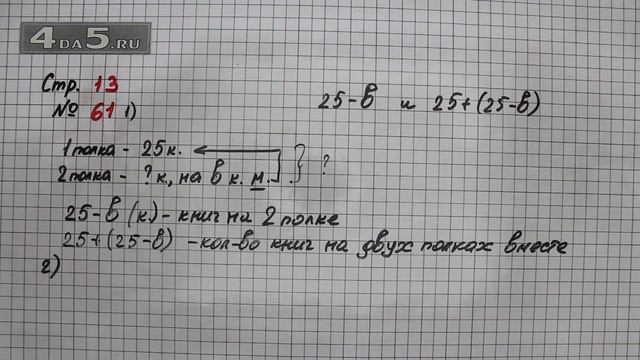 4DA5.RU
Стр. 13
№ 61 1)
25-в и 25+(25-в)
1 полка - 25 к.
2 полка - ? к., на в к. м. ?
25-в (к.) - книг на 2 полке
25+(25-в) - кол-во книг на двух полках вместе
2)